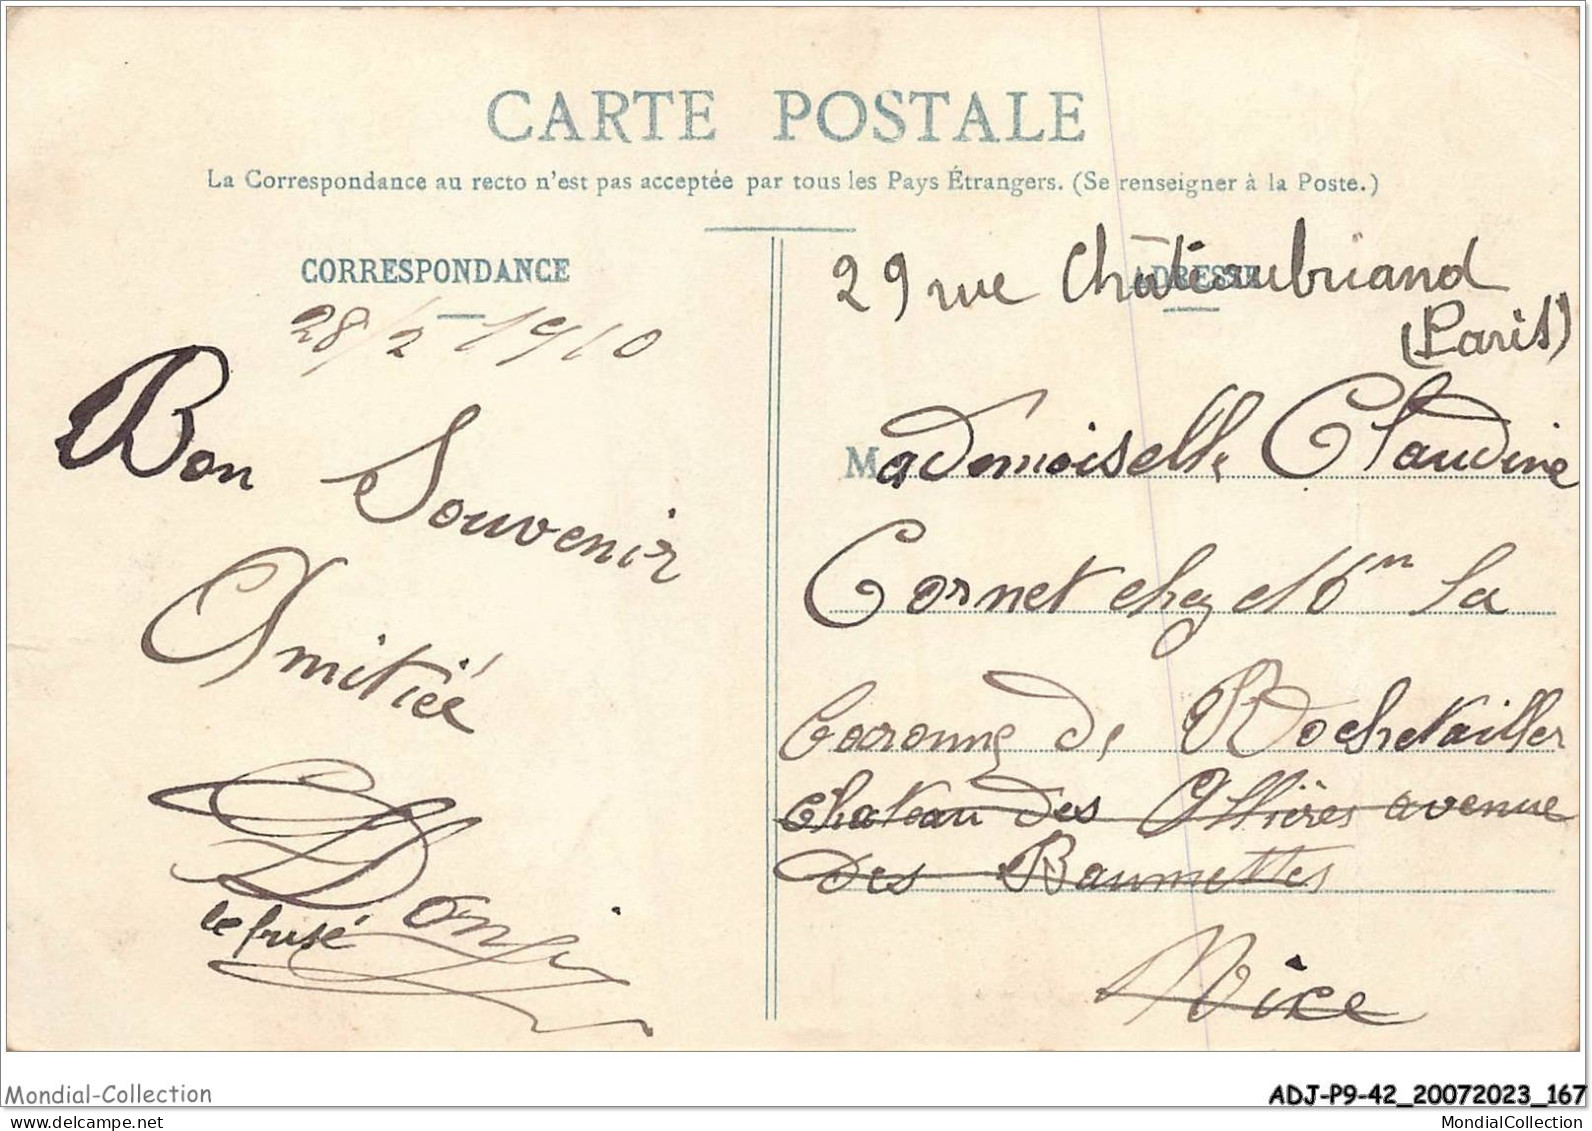 CARTE POSTALE
La Correspondance au recto n'est pas acceptée par tous les Pays Étrangers. (Se renseigner à la Poste.)
CORRESPONDANCE
28/2 1910
Bon Souvenir
Amitiée
le frisé
ADRESSE
29 rue Châteaubriand
(Paris)
Mademoiselle Claudine
Cornet chez Mm la
baronne de Rochetailler
chateau des Ollières avenue
des Baumettes
Nice
Mondial-Collection
ADJ-P9-42_20072023_167
www.delcampe.net
MondialCollection